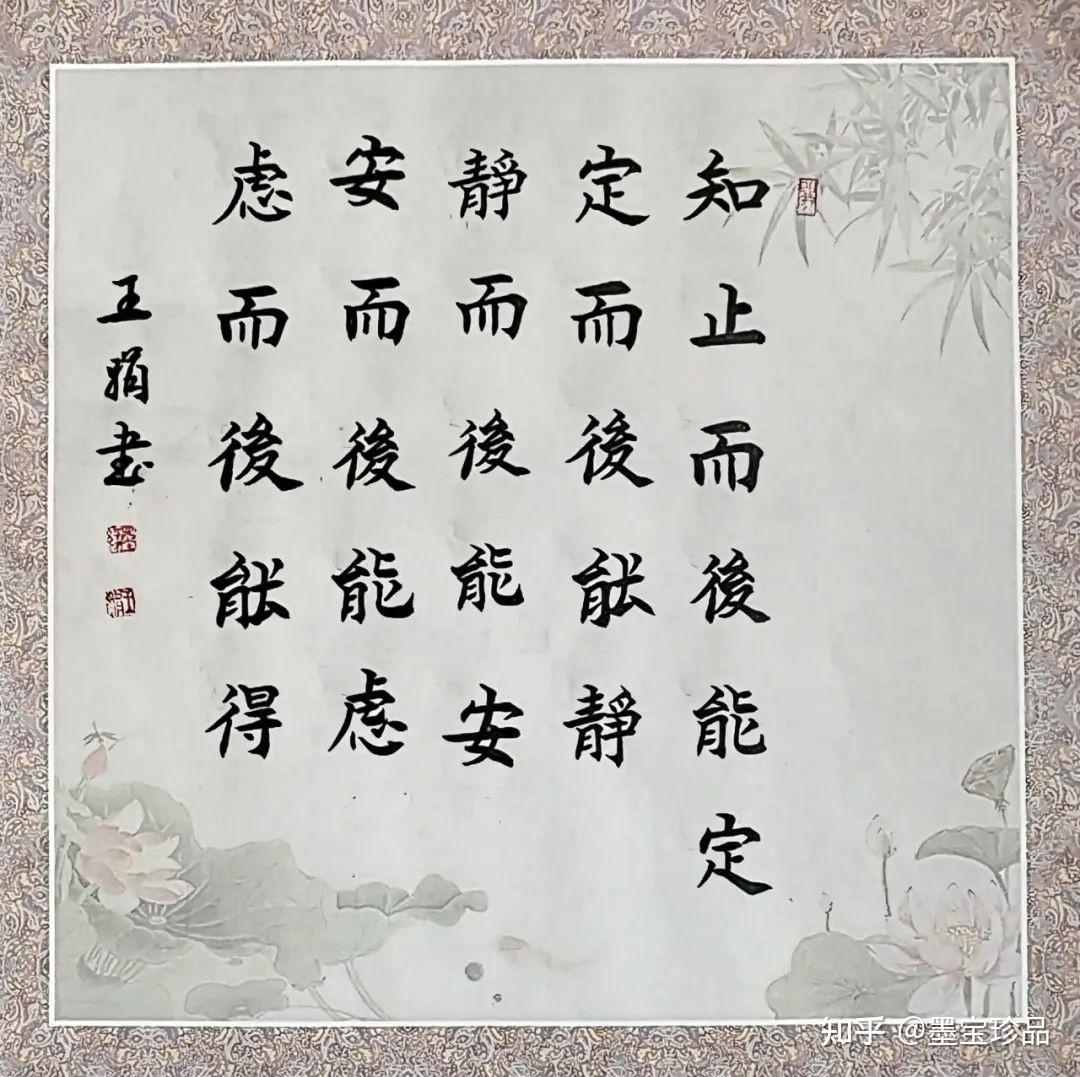 知止而後能定
定而後能靜
靜而後能安
安而後能虑
虑而後能得
王娟書
知乎 @墨宝珍品